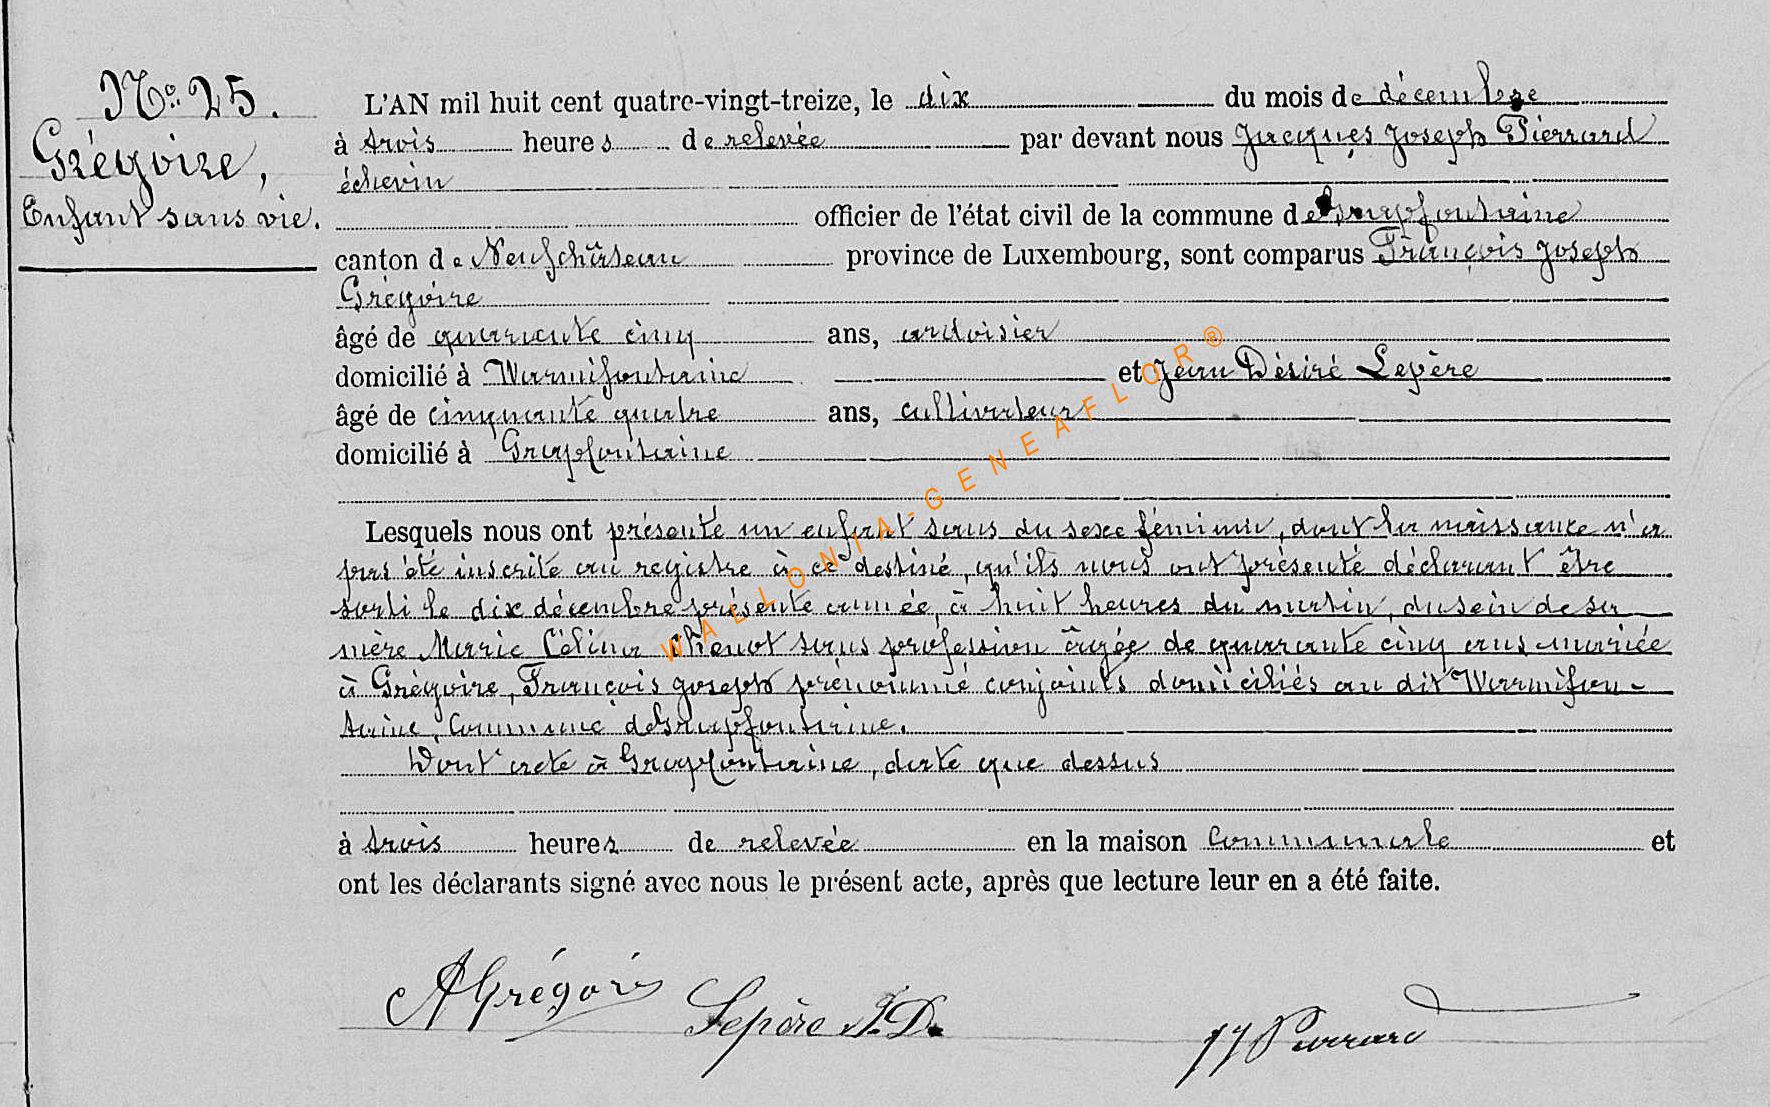 No. 25.
Grégoire,
Enfant sans vie.
L'AN mil huit cent quatre-vingt-treize, le dix du mois de décembre
à trois heures de relevée par devant nous Jacques Joseph Pierrard
échevin
officier de l'état civil de la commune de Grapfontaine
canton de Neufchâteau province de Luxembourg, sont comparus François Joseph
Grégoire
âgé de quarante cinq ans, ardoisier
domicilié à Warmifontaine et Jean Désiré Lepère
âgé de cinquante quatre ans, cultivateur
domicilié à Grapfontaine
Lesquels nous ont présenté un enfant sans du sexe féminin, dont la naissance n'a
pas été inscrite au registre à ce destiné, qu'ils nous ont présenté déclarant être
sorti le dix décembre présente année, à huit heures du matin, du sein de sa
mère Marie Célina sans profession âgée de quarante cinq ans mariée
à Grégoire, François Joseph prénommé conjoints domiciliés au dit Warmifon-
taine, Commune de Grapfontaine.
Dont acte à Grapfontaine, date que dessus
à trois heures de relevée en la maison Communale et
ont les déclarants signé avec nous le présent acte, après que lecture leur en a été faite.
AGrégoire Lepère J.D. JJ Pierrard
WALLONIA-GENEAFLOR®